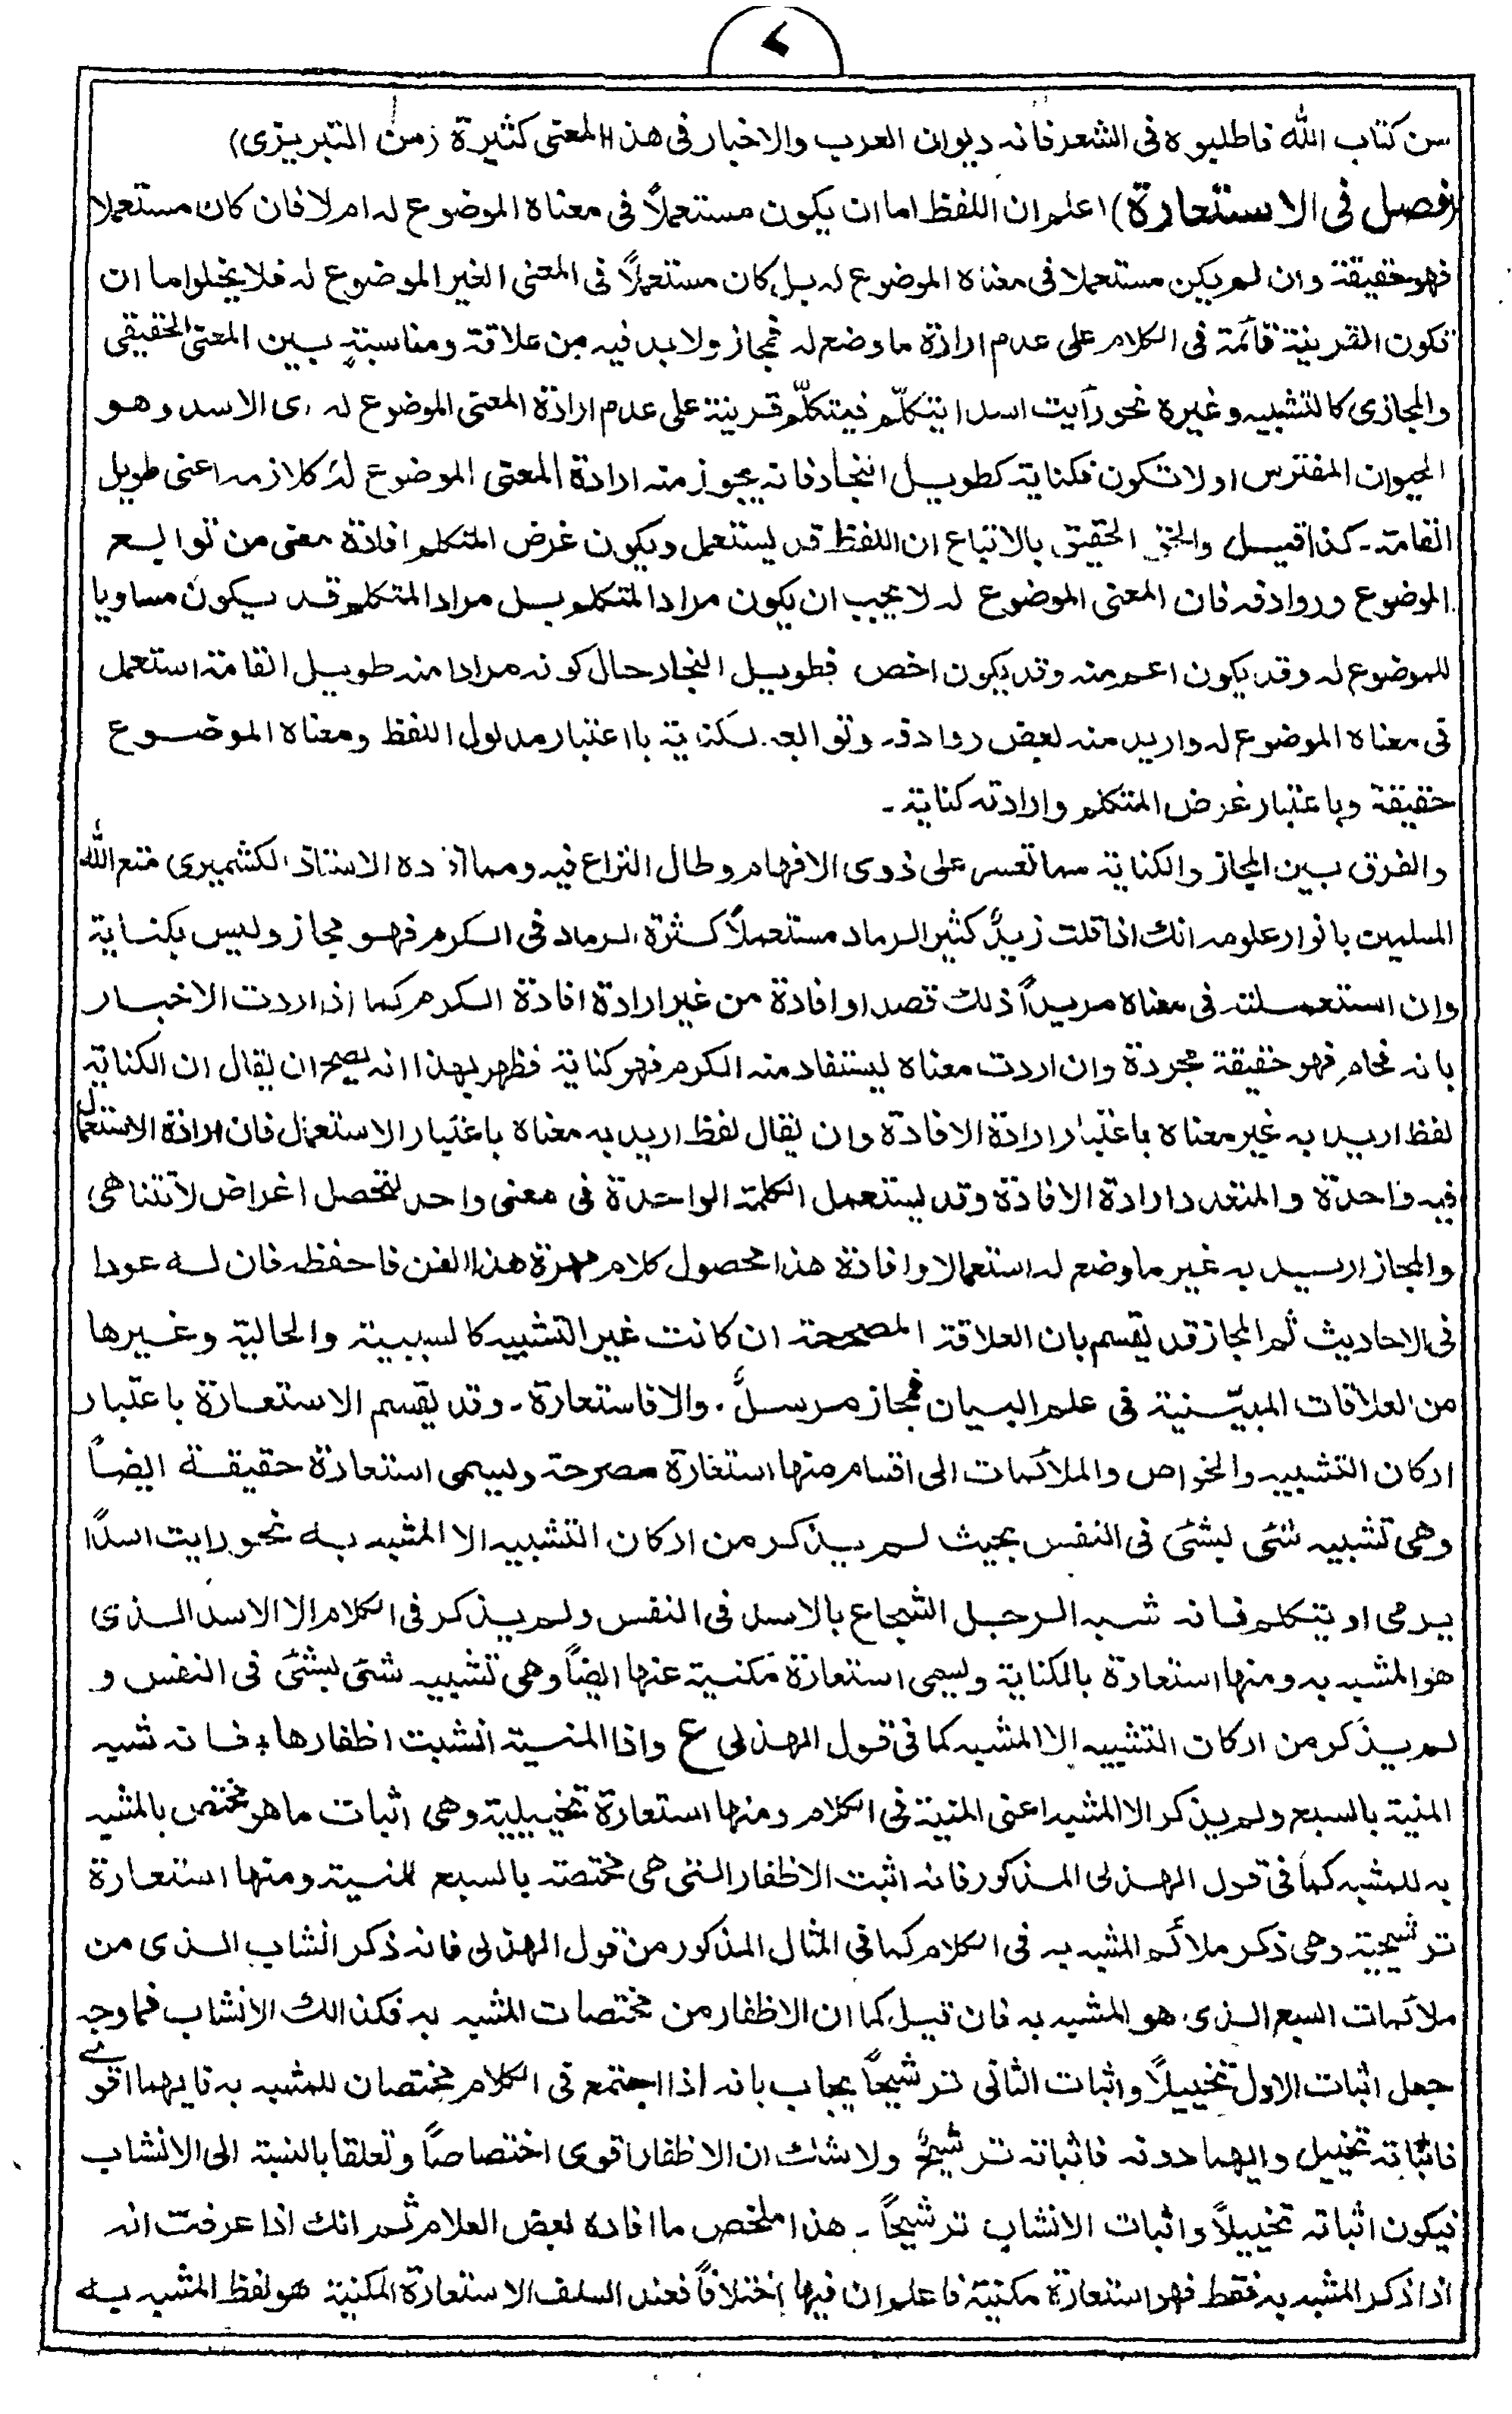 من كتاب الله فاطلبوه في الشعر فانه ديوان العرب والاخبار في هذا المعنى كثيرة (من التبريزى)
(فصل في الاستعارة) اعلم ان اللفظ اما ان يكون مستعملاً في معناه الموضوع له ام لا فان كان مستعملا
فهو حقيقة وان لم يكن مستعملا في معناه الموضوع له بل كان مستعملاً في المعنى الغير الموضوع له فلا يخلو اما ان
تكون القرينة قائمة في الكلام على عدم ارادة ما وضع له فمجاز ولا بد فيه من علاقة ومناسبةٍ بين المعنى الحقيقي
والمجازى كالتشبيه وغيره نحو رأيت اسدا يتكلّم فيتكلّم قرينة على عدم ارادة المعنى الموضوع له اى الاسد وهو
الحيوان المفترس او لا تكون فكناية كطويل النجاد فانه يجوز منه ارادة المعنى الموضوع له كلازمه اعنى طويل
القامة ـ كذا قيل والحق الحقيق بالاتباع ان اللفظ قد يستعمل ويكون غرض المتكلم افادة معنى من توابع
الموضوع وروادفه فان المعنى الموضوع له لا يجب ان يكون مراد المتكلم بل مراد المتكلم قد يكون مساويا
للموضوع له وقد يكون اعم منه وقد يكون اخص فطويل النجاد حال كونه مرادا منه طويل القامة استعمل
في معناه الموضوع له واريد منه بعض روادفه وتوابعه فكناية باعتبار مدلول اللفظ ومعناه الموضوع
حقيقة وباعتبار غرض المتكلم وارادته كناية ـ
والفرق بين المجاز والكناية مما تعسر على ذوى الافهام وطال النزاع فيه ومما افاده الاستاذ الكشميرى متع الله
المسلمين بانوار علومه انك اذا قلت زيدٌ كثير الرماد مستعملاً كثرة الرماد في الكرم فهو مجاز وليس بكناية
وان استعملته في معناه مريداً ذلك قصدا وافادة من غير ارادة افادة الكرم كما اذا اردت الاخبار
بانه فحام فهو حقيقة مجردة وان اردت معناه ليستفاد منه الكرم فهو كناية فظهر بهذا انه يصح ان يقال ان الكناية
لفظ اريد به غير معناه باعتبار ارادة الافادة وان يقال لفظ اريد به معناه باعتبار الاستعمال فان ارادة الاستعمال
فيه واحدة والمتعدد ارادة الافادة وقد يستعمل الكلمة الواحدة في معنى واحد لتحصل اغراض لا تتناهى
والمجاز اريد به غير ما وضع له استعمالا وافادة هذا محصول كلام مهرة هذا الفن فاحفظه فان له عودا
في الاحاديث ثم المجاز قد يقسم بان العلاقة المصححة ان كانت غير التشبيه كالسببية والحالية وغيرها
من العلاقات المبيّنة في علم البيان فمجاز مرسلٌ ـ والا فاستعارة ـ وقد يقسم الاستعارة باعتبار
اركان التشبيه والخواص والملائمات الى اقسام منها استعارة مصرحة ويسمى استعارة حقيقة ايضاً
وهي تشبيه شئ بشئ في النفس بحيث لم يذكر من اركان التشبيه الا المشبه به نحو رايت اسدًا
يرمى او يتكلم فانه شبه الرجل الشجاع بالاسد في النفس ولم يذكر في الكلام الا الاسد الذى
هو المشبه به ومنها استعارة بالكناية ويسمى استعارة مكنية عنها ايضاً وهي تشبيه شئ بشئ في النفس و
لم يذكر من اركان التشبيه الا المشبه كما في قول الهذلى ع واذا المنية انشبت اظفارها؛ فانه شبه
المنية بالسبع ولم يذكر الا المشبه اعنى المنية في الكلام ومنها استعارة تخييلية وهي اثبات ما هو مختص بالمشبه
به للمشبه كما في قول الهذلى المذكور فانه اثبت الاظفار التى هي مختصة بالسبع للمنية ومنها استعارة
ترشيحية وهي ذكر ملائم المشبه به في الكلام كما في المثال المذكور من قول الهذلى فانه ذكر انشاب الذى من
ملائمات السبع الذى هو المشبه به فان قيل كما ان الاظفار من مختصات المشبه به فكذالك الانشاب فما وجه
جعل اثبات الاول تخييلاً واثبات الثانى ترشيحاً يجاب بانه اذا اجتمع في الكلام مختصان للمشبه به فايهما اقوى
فاثباته تخييل وايهما دونه فاثباته ترشيحٌ ولا شك ان الاظفار اقوى اختصاصاً وتعلقا بالنسبة الى الانشاب
فيكون اثباته تخييلاً واثبات الانشاب ترشيحاً ـ هذا ملخص ما افاده بعض العلام ثم انك اذا عرفت انه
اذا ذكر المشبه به فقط فهو استعارة مكنية فاعلم ان فيها اختلافاً فعند السلف الاستعارة المكنية هو لفظ المشبه به